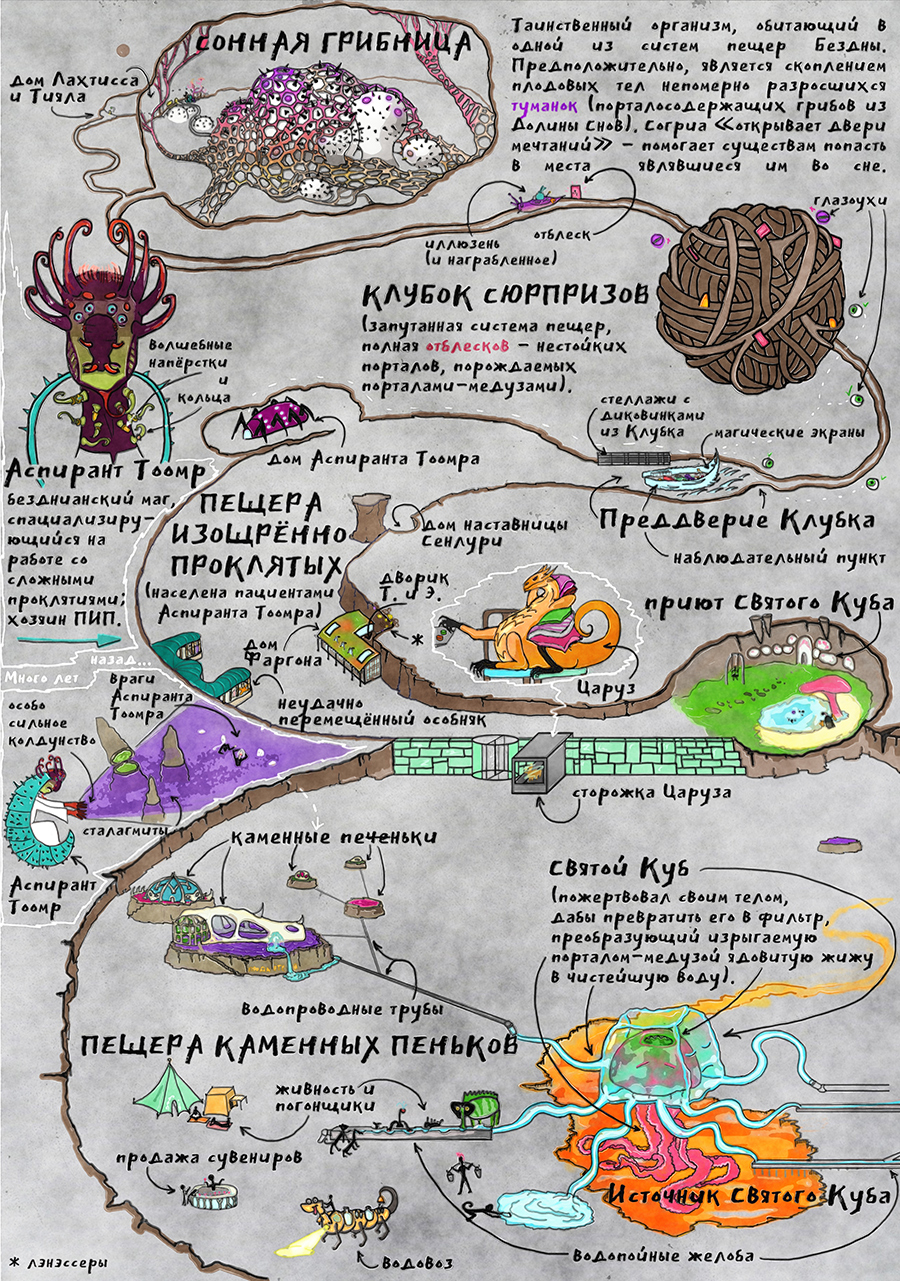 СОННАЯ ГРИБНИЦА
Таинственный организм, обитающий в
одной из систем пещер Бездны.
Предположительно, является скоплением
плодовых тел непомерно разросшихся
туманок (порталосодержащих грибов из
Долины Снов). Согриа «открывает двери
мечтаний» – помогает существам попасть
в места являвшиеся им во сне.
дом Лахтисса
и Тияла
глазоухи
иллюзень
(и награбленное)
отблеск
КЛУБОК СЮРПРИЗОВ
(запутанная система пещер,
полная отблесков – нестойких
порталов, порождаемых
порталами-медузами).
Волшебные
напёрстки
и
кольца
стеллажи с
диковинками
из Клубка
магические экраны
дом Аспиранта Тоомра
Аспирант Тоомр
безднианский маг,
спациализиру-
ющийся на
работе со
сложными
проклятиями;
хозяин ПИП.
ПЕЩЕРА
ИЗОЩРЁННО
ПРОКЛЯТЫХ
(населена пациентами
Аспиранта Тоомра)
Дом наставницы
Сенлури
Преддверие Клубка
наблюдательный пункт
дворик
Т. и Э.
*
приют СВЯТОГО КУБА
Дом
Фаргона
Царуз
неудачно
перемещённый особняк
назад...
Много лет
особо
сильное
колдунство
враги
Аспиранта
Тоомра
сталагмиты
Аспирант
Тоомр
сторожка Царуза
каменные печеньки
СВЯТОЙ КУБ
(пожертвовал своим телом,
дабы превратить его в фильтр,
преобразующий изрыгаемую
порталом-медузой ядовитую жижу
в чистейшую воду).
водопроводные трубы
ПЕЩЕРА КАМЕННЫХ ПЕНЬКОВ
живность и
погонщики
продажа сувениров
Источник СВЯТОГО КУБА
водопойные желоба
водовоз
* лэнэссеры